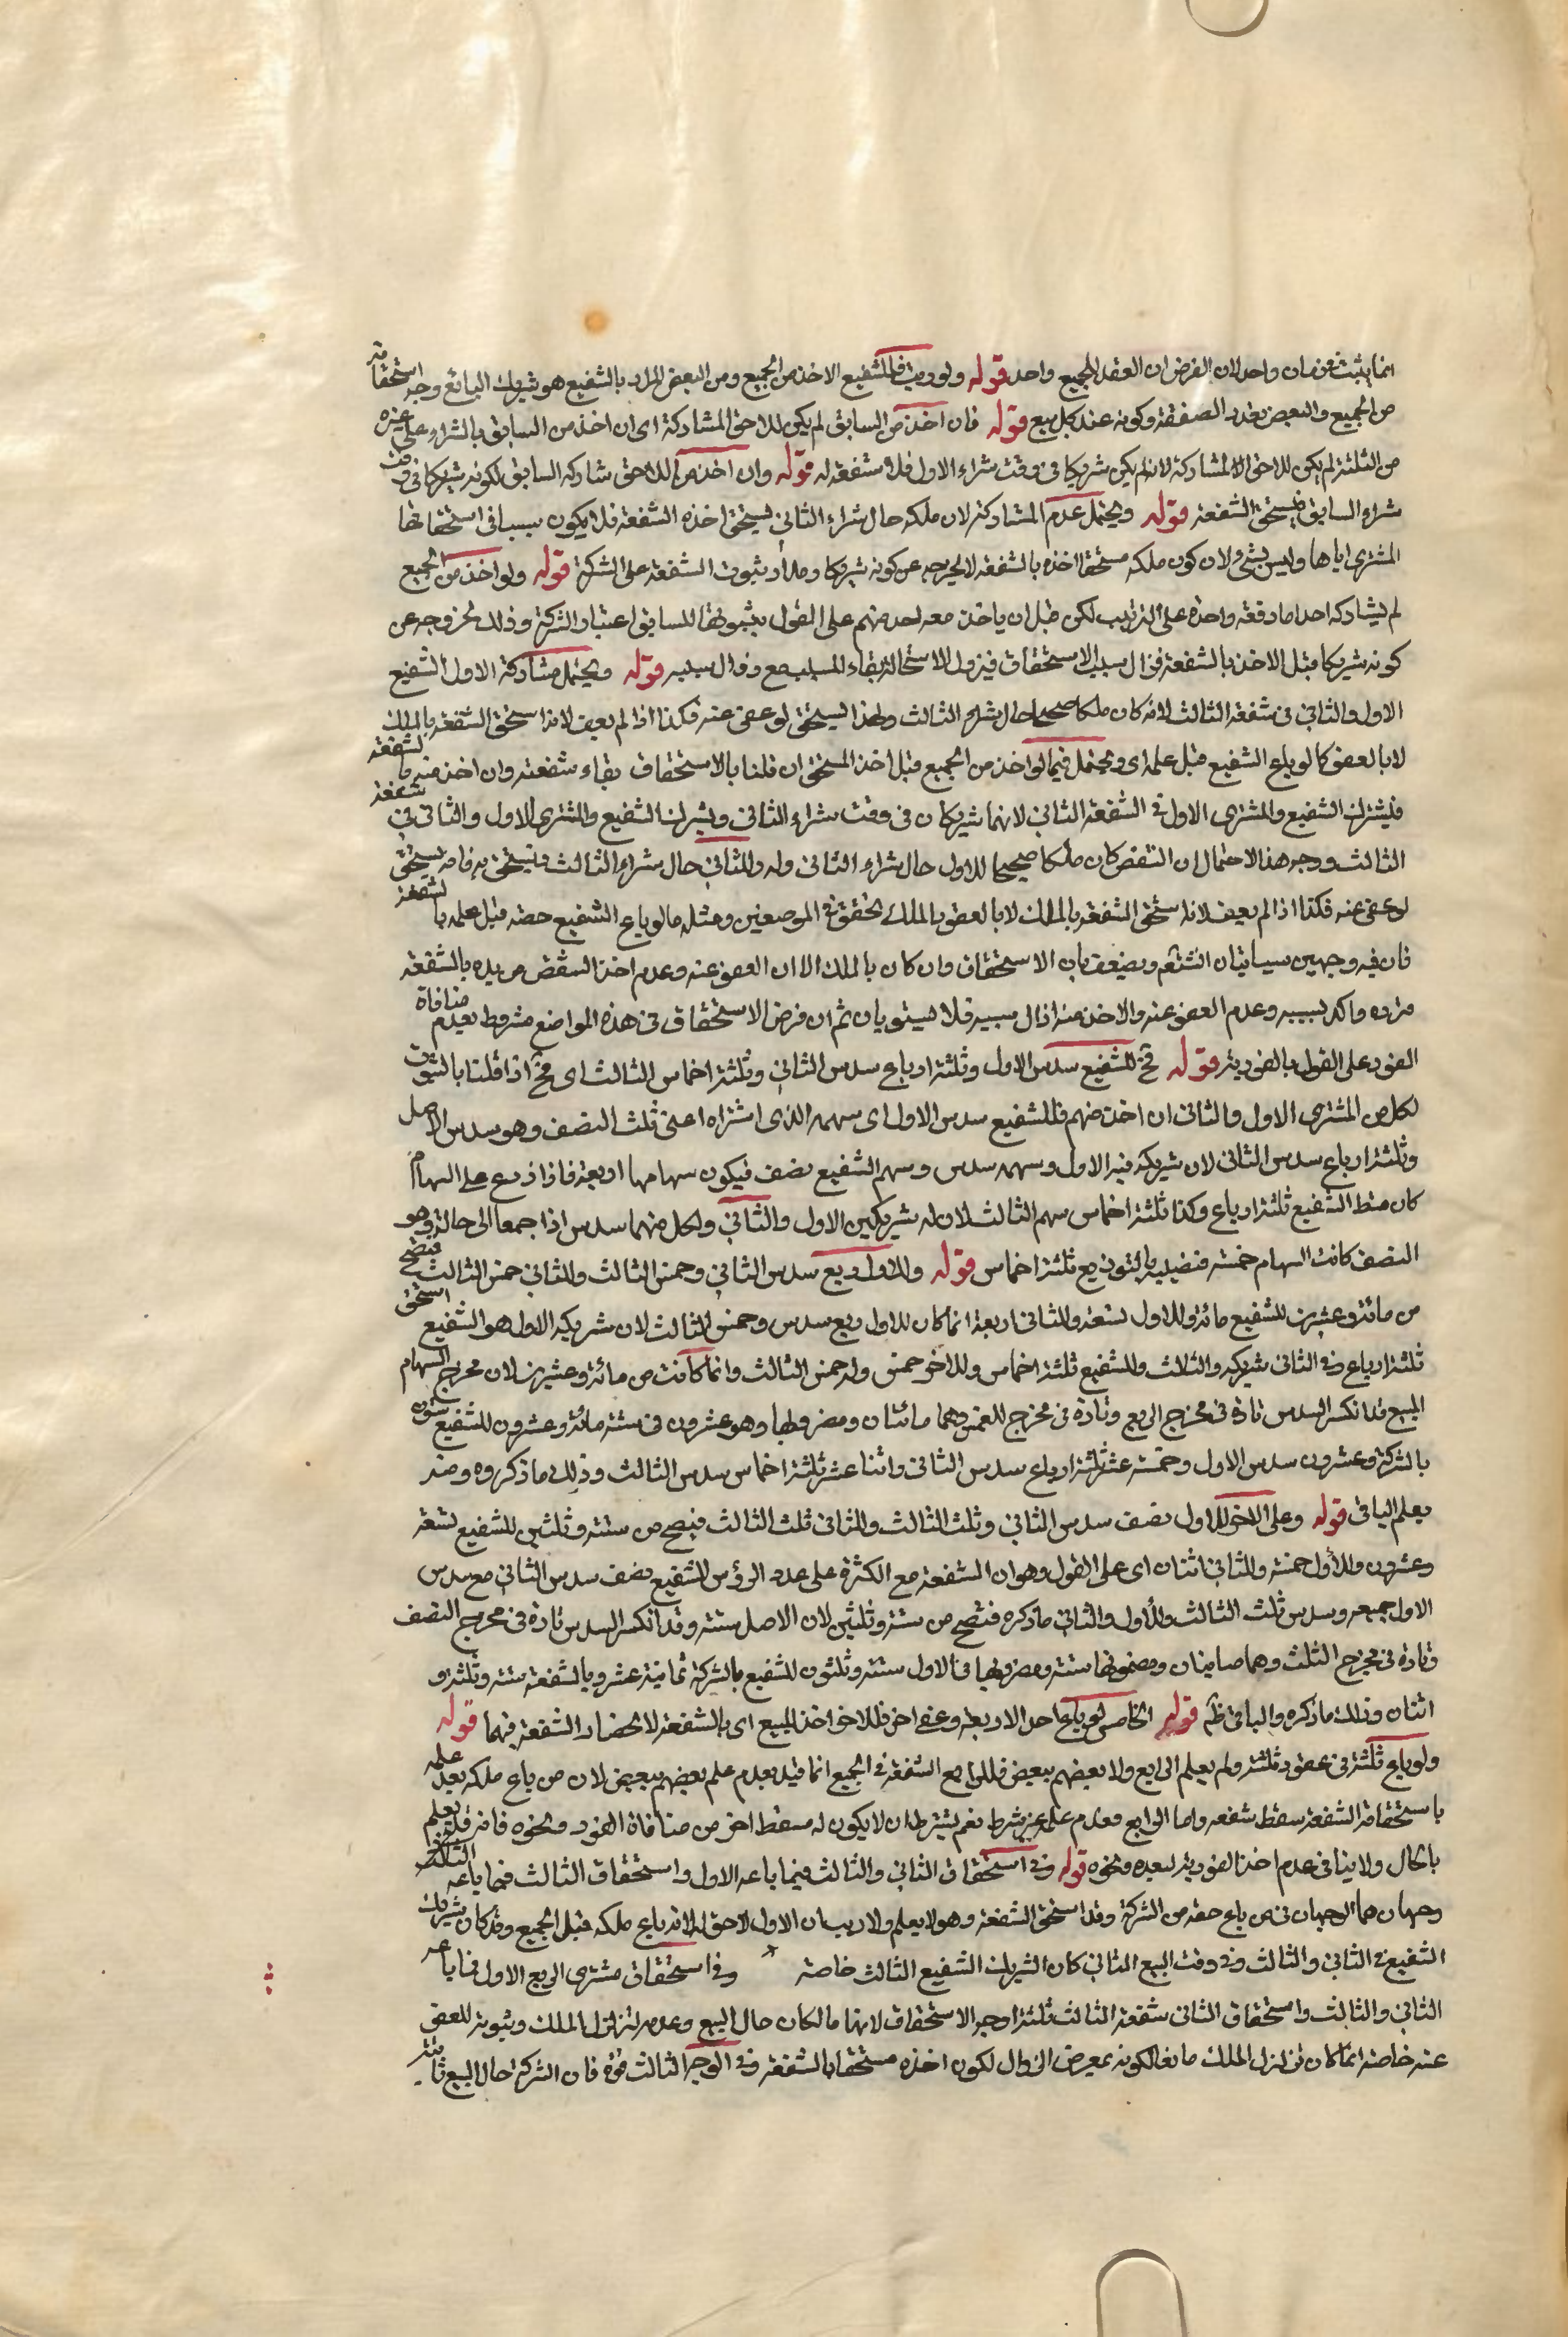 انما يثبت في زمان واحد لان الفرض ان العقد للجميع واحد قوله ولو رتبت فللشفيع الاخذ من الجميع ومن البعض المراد بالشفيع هو شريك البائع وجه استحقاقه
من الجميع والبعض تعدد الصفقة وكونه عند كل بيع قوله فان اخذ من السابق لم يكن للاحق المشاركة اى ان اخذ من السابق بالشراء على غيره
من الثلثة لم يكن للاحق المشاركة لانه لم يكن شريكا فى وقت شراء الاول فلا شفعة له قوله وان اخذ من اللاحق شاركه السابق لكونه شريكا فى وقت
شراء السابق فيستحق الشفعة قوله ويحتمل عدم المشاركة لان ملكه حال شراء الثانى يستحق اخذه الشفعة فلا يكون سببا فى استحقاقها
المشترى اياها وليس بشئ لان كون ملكه مستحقا اخذه بالشفعة لا يخرجه عن كونه شريكا ومدار ثبوت الشفعة على الشركة قوله ولو اخذ من الجميع
لم يشاركه احد اما دفعة واحدة على الترتيب لكن قبل ان ياخذ معه احد منهم على القول بثبوتها للسابق اعتبار الشركة وذلك لخروجه عن
كونه شريكا قبل الاخذ بالشفعة فزال سبب الاستحقاق فيزول لاستحالة بقاء المسبب مع زوال سببه قوله ويحتمل مشاركة الاول الشفيع
الاول والثانى فى شفعة الثالث لانه كان ملكا صحيحا حال شراء الثالث ولهذا يستحق لو عفى عنه فكذا اذا لم يعف لانه استحق الشفعة بالملك
لا بالعفو كما لو باع الشفيع قبل علمه اى ويحتمل فيما لو اخذ من الجميع قبل اخذ المستحق ان قلنا بالاستحقاق بقاء شفعته وان اخذ منه بالشفعة
فيشترك الشفيع والمشترى الاول فى الشفعة الثانى لانهما شريكان فى وقت شراء الثانى ويشترك الشفيع والمشترى الاول والثانى فى شفعة
الثالث ووجه هذا الاحتمال ان الشقص كان ملكا صحيحا للاول حال شراء الثانى وله وللثانى حال شراء الثالث فيستحق به فانه يستحق
لو عفى عنه فكذا اذا لم يعف لانه استحق الشفعة بالملك لا بالعفو والملك تحقق فى الموضعين ومثله ما لو باع الشفيع حصته قبل علمه بالشفعة
فان فيه وجهين سياتيان انشاء الله ويضعف بان الاستحقاق وان كان بالملك الا ان العفو عنه وعدم اخذ الشقص من يده بالشفعة
قرره واكد لسببه وعدم العفو عنه والاخذ منه ازال سببه فلا يستويان ثم ان فرض الاستحقاق فى هذه المواضع مشروط بعدم منافاة
الفور على القول بالفورية قوله فح للشفيع سدس الاول وثلثة ارباع سدس الثانى وثلثة اخماس الثالث اى فح اذا قلنا بالثبوت
لكل من المشترى الاول والثانى ان اخذ منهم فللشفيع سدس الاول اى سهمه الذى اشتراه اعنى ثلث النصف وهو سدس الاصل
وثلثة ارباع سدس الثانى لان شريكه فيه الاول وسهمه سدس وسهم الشفيع نصف فيكون سهامهما اربعة فاذا وزع على السهام
كان قسط الشفيع ثلثة ارباع وكذا ثلثة اخماس سهم الثالث لان له شريكين الاول والثانى ولكل منهما سدس اذا جمعا الى حاله وهو
النصف كانت السهام خمسة فنصيبه بالتوزيع ثلثة اخماس قوله وللاول ربع سدس الثانى وخمس الثالث وللثانى خمس الثالث فتصح
من مائة وعشرين للشفيع مائة وللاول تسعة وللثانى اربعة انما كان للاول ربع سدس وخمس الثالث لان شريكه الاول هو الشفيع استحق
ثلثة ارباع وفى الثانى شريكه والثالث وللشفيع ثلثة اخماس وللاخر خمس وله خمس الثالث وانما كانت من مائة وعشرين لان مخرج السهام
المبيع قد انكسر السدس تارة فى مخرج الربع وتارة فى مخرج الخمس وهما متباينان ومضروبهما وهو عشرون فى ستة مائة وعشرون للشفيع ستون
بالشركة وعشرون سدس الاول وخمسة عشر ثلثة ارباع سدس الثانى واثنا عشر ثلثة اخماس سدس الثالث وذلك ما ذكروه ومنه
يعلم الباقى قوله وعلى الاخر للاول نصف سدس الثانى وثلث الثالث وللثانى ثلث الثالث فيصح من ستة وثلثين للشفيع تسعة
وعشرون وللاول خمسة وللثانى اثنان اى على القول وهو ان الشفعة مع الكثرة على عدد الرؤس للشفيع نصف سدس الثانى مع سدس
الاول جميعه وسدس ثلث الثالث وللاول والثانى ما ذكره فتصح من ستة وثلثين لان الاصل ستة وقد انكسر السدس تارة فى مخرج النصف
وتارة فى مخرج الثلث وهما متباينان ومضروبهما ستة ومضروبها فى الاول ستة وثلثون للشفيع بالشركة ثمانية عشر وبالشفعة ستة وثلثة و
اثنان وذلك ما ذكره والباقى ظم قوله الخامس لو باع احد الاربعة وعفى اخر فللاخر اخذ المبيع اى بالشفعة لانحصار الشفعة فيهما قوله
ولو باع ثلثة فى عقود ثلثة ولم يعلم الرابع ولا بعضهم ببعض فللرابع الشفعة فى الجميع انما قيد بعدم علم بعضهم ببعض لان من باع ملكه بعد علمه
باستحقاقه الشفعة سقط شفعته واما الرابع فعدم علمه غير شرط نعم يشترط ان لا يكون له مسقط اخر من منافاة الفور ونحوه فانه قد يعلم
بالحال ولا ينافى عدم اخذ الفورية لبعده ونحوه قوله وفى استحقاق الثانى والثالث فيما باعه الاول واستحقاق الثالث فيما باعه الثانى
وجهان هما الوجهان فى من باع حقه من الشركة وقد استحق الشفعة وهو لا يعلم ولا ريب ان الاول لا حق له لانه باع ملكه قبل الجميع وقد كان شريك
الشفيع فى الثانى والثالث وفى وقت البيع الثانى كان الشريك الشفيع الثالث خاصة وفى استحقاق مشترى الربع الاول فيما باعه
الثانى والثالث واستحقاق الثانى شفعة الثالث ثلثة اوجه الاستحقاق لانهما مالكان حال البيع وعدمه لتزلزل الملك وثبوته للعفى
عنه خاصة انما كان تزلزل الملك مانعا لكونه بمعرض الزوال لكون اخذه مستحقا بالشفعة وفى الوجه الثالث قوة فان الشركة حال البيع ثابتة